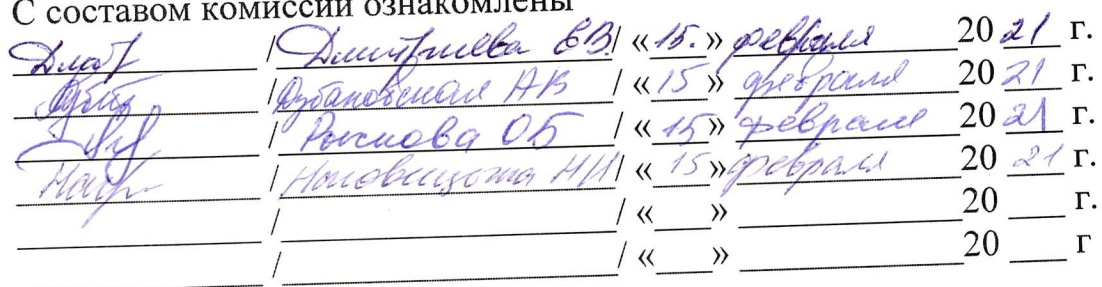 С составом комиссии ознакомлены
/ Дмитриева ЕВ / «15.» февраля 20 21 г.
/ АВ / «15» февраля 20 21 г.
/ ОБ / «15» февраля 20 21 г.
/ НИ / «15» февраля 20 21 г.
/ / « » 20 г.
/ / « » 20 г